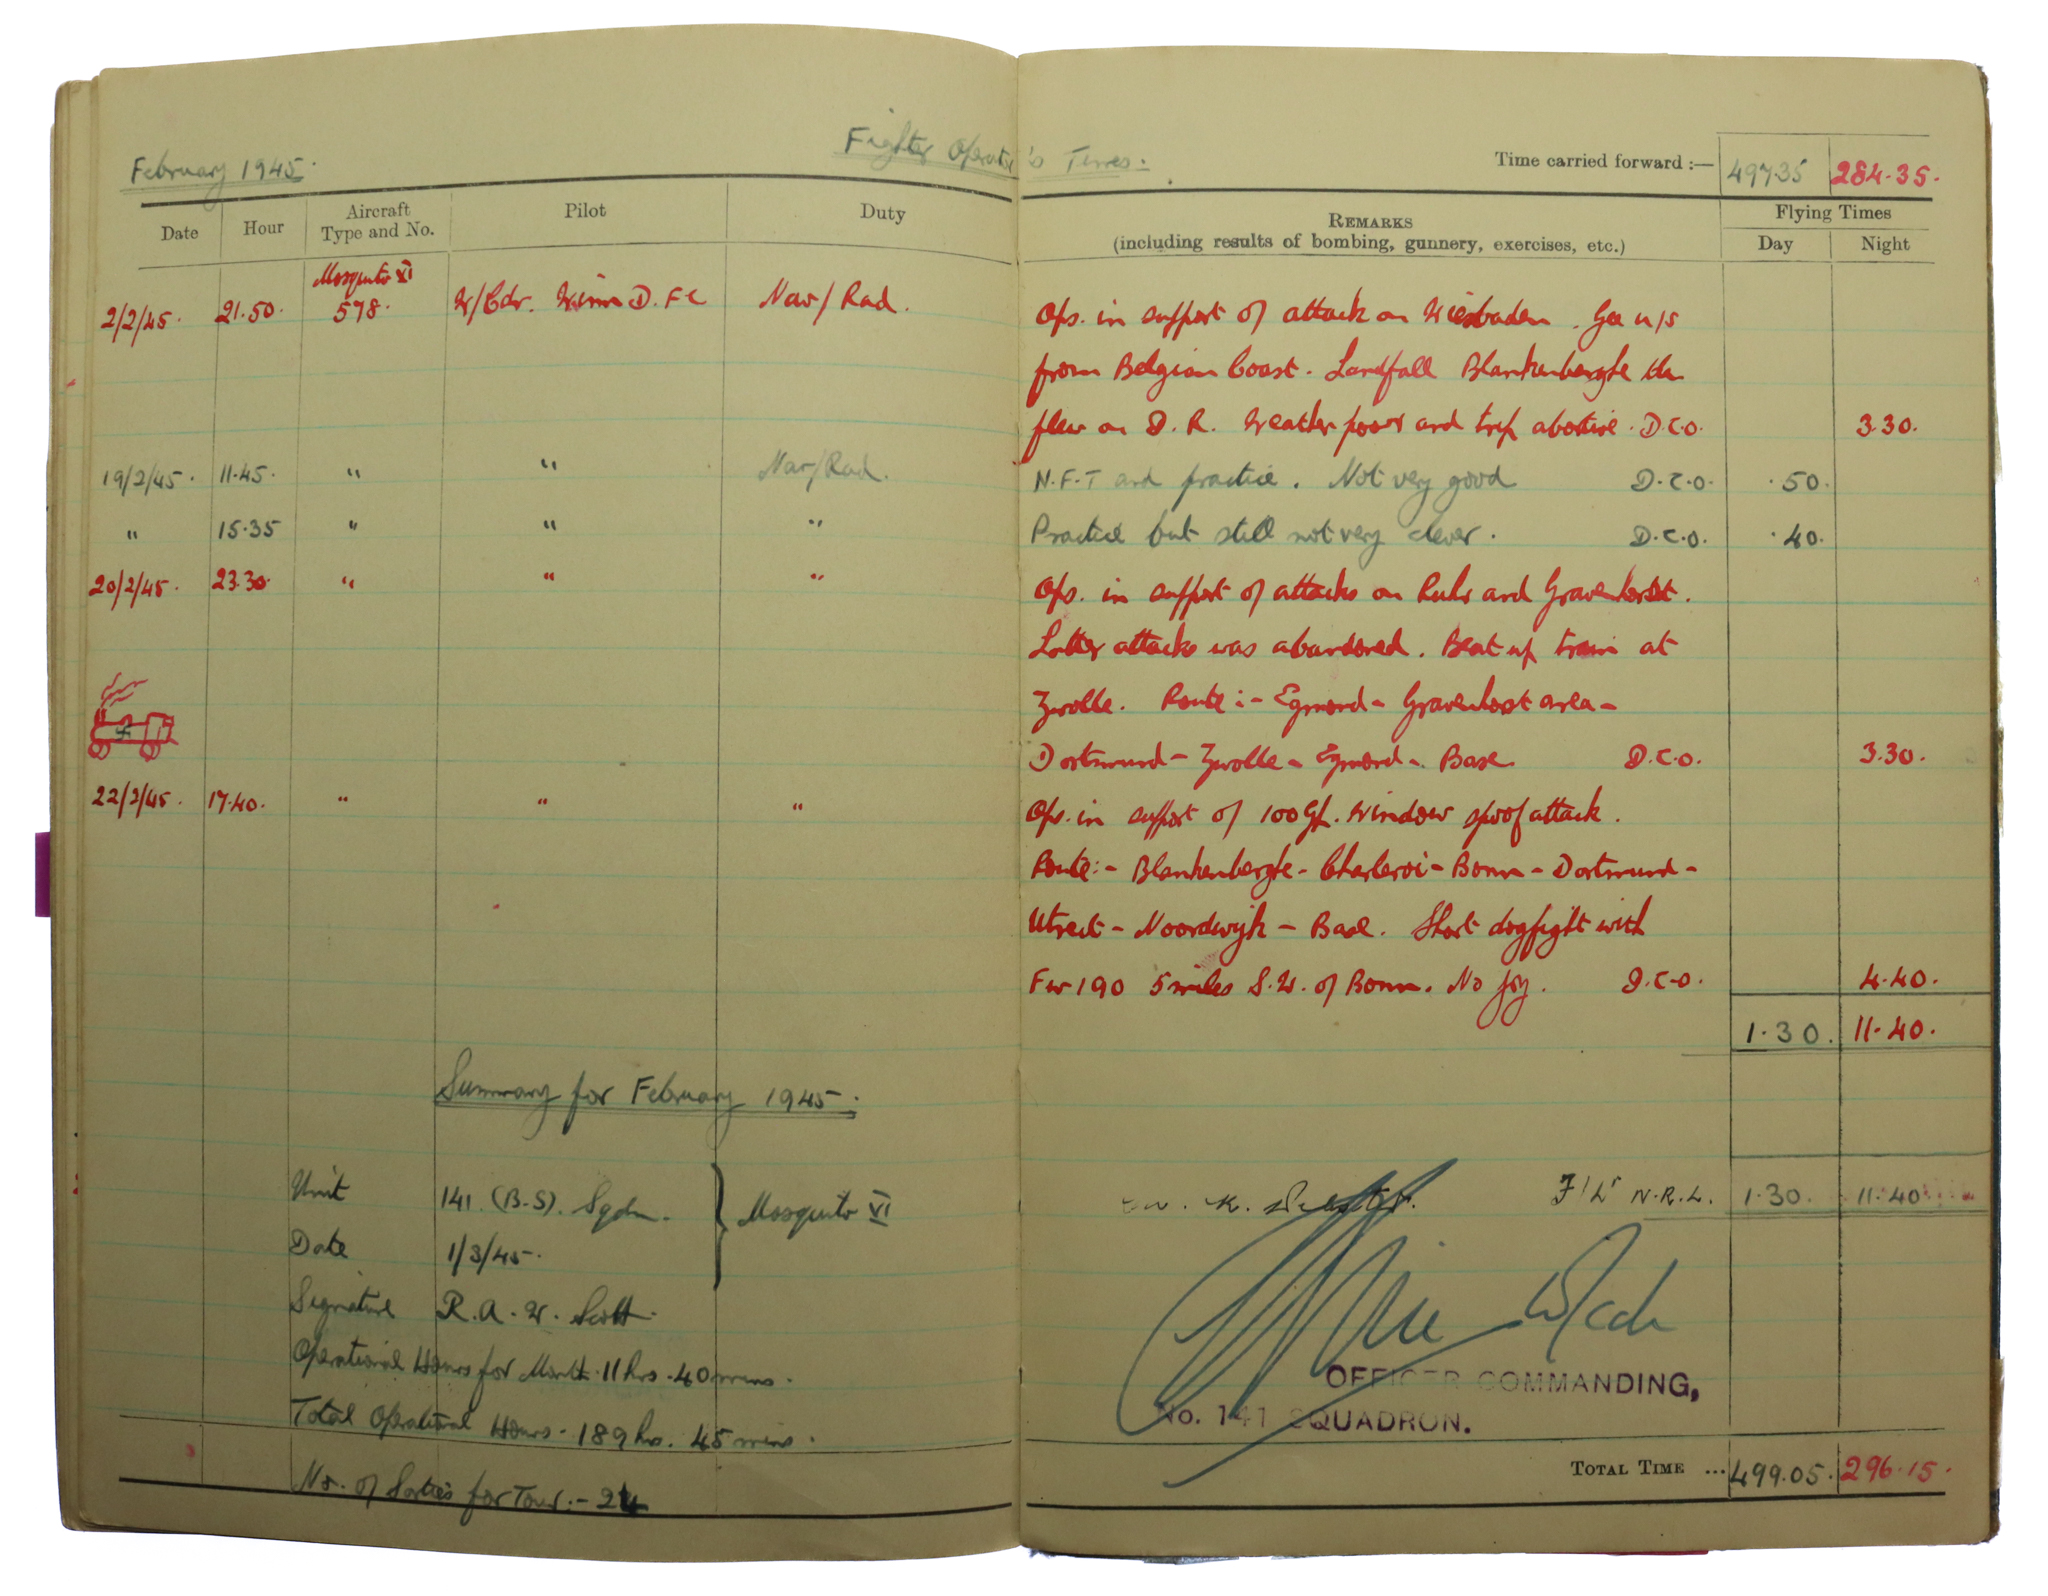 February 1945.
Fighter Operator's Times.
Time carried forward :— 497.35 284.35.
Date Hour Aircraft Type and No. Pilot Duty
REMARKS (including results of bombing, gunnery, exercises, etc.)
Flying Times
Day Night
Mosquito VI
2/2/45. 21.50. 578. W/Cdr. Winn D.F.C Nav/Rad. Ops. in support of attack on Wiesbaden. Gee u/s
from Belgian Coast. Landfall Blankenberghe then
flew on D.R. Weather poor and trip abortive. D.C.O. 3.30.
19/2/45. 11.45. " " Nav/Rad. N.F.T and practice. Not very good D.C.O. .50.
" 15.35 " " " Practice but still not very clever. D.C.O. .40.
20/2/45. 23.30. " " " Ops. in support of attacks on Ruhr and Gravenhorst.
Latter attacks was abandoned. Beat up train at
Zwolle. Route :- Egmond - Gravenhorst area -
Dortmund - Zwolle - Egmond - Base D.C.O. 3.30.
22/2/45. 17.40. " " " Ops. in support of 100 Gp. Window spoof attack.
Route:- Blankenberghe - Charleroi - Bonn - Dortmund -
Utrect - Noordwijk - Base. Short dogfight with
FW190 5 miles S.W. of Bonn. No joy. D.C.O. 4.40.
1.30. 11.40.
Summary for February 1945.
Unit 141. (B.S). Sqdn. Mosquito VI
F/Lt N.R.L. 1.30. 11.40
Date 1/3/45.
Signature R.A.W. Scott.
Operational Hours for Month. 11 hrs. 40 mins.
OFFICER COMMANDING,
No. 141 SQUADRON.
Total Operational Hours. 189 hrs. 45 mins.
TOTAL TIME ... 499.05. 296.15.
No. of Sorties for Tour :- 24